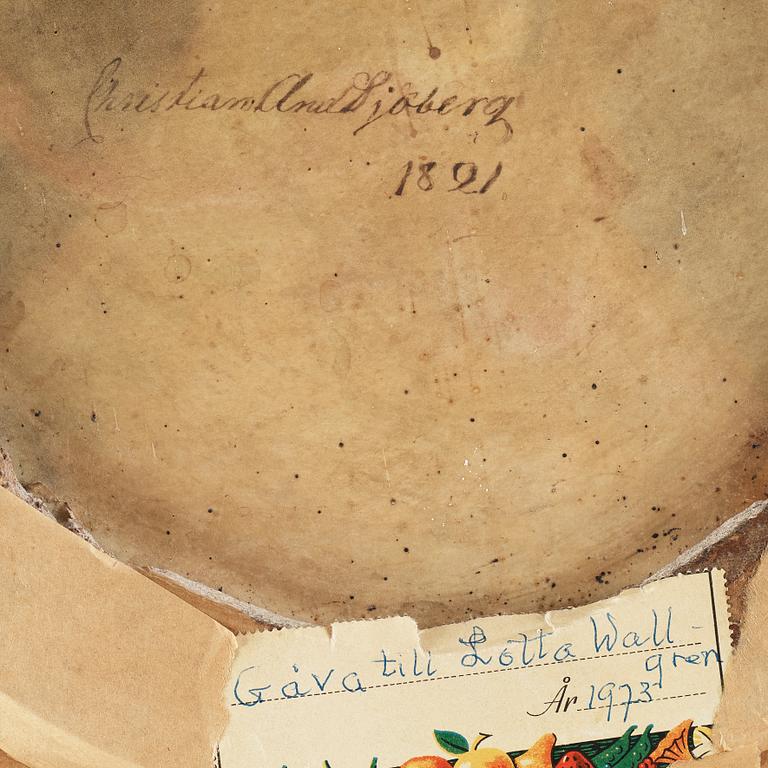 Christian And Sjöberg
1821
Gåva till Lotta Wall-
gren
År 1973